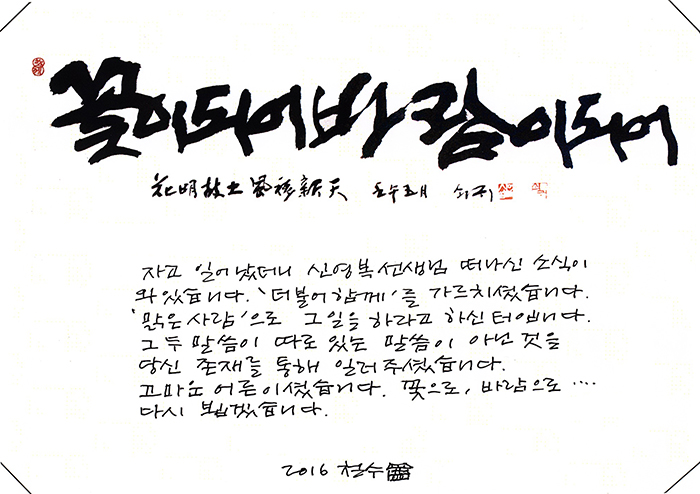 꽃이되어바람이되어
花明故土風移新天 임수오月 쇠귀
자고 일어났더니 신영복선생님 떠나신 소식이
와있습니다. '더불어함께'를 가르치셨습니다.
'맑은사람'으로 그일을 하라고 하신터입니다.
그 두 말씀이 따로 있는 말씀이 아닌 것을
당신 존재를 통해 일러주셨습니다.
고마운 어른이셨습니다. 꽃으로, 바람으로 ....
다시 뵙겠습니다.
2016 철수